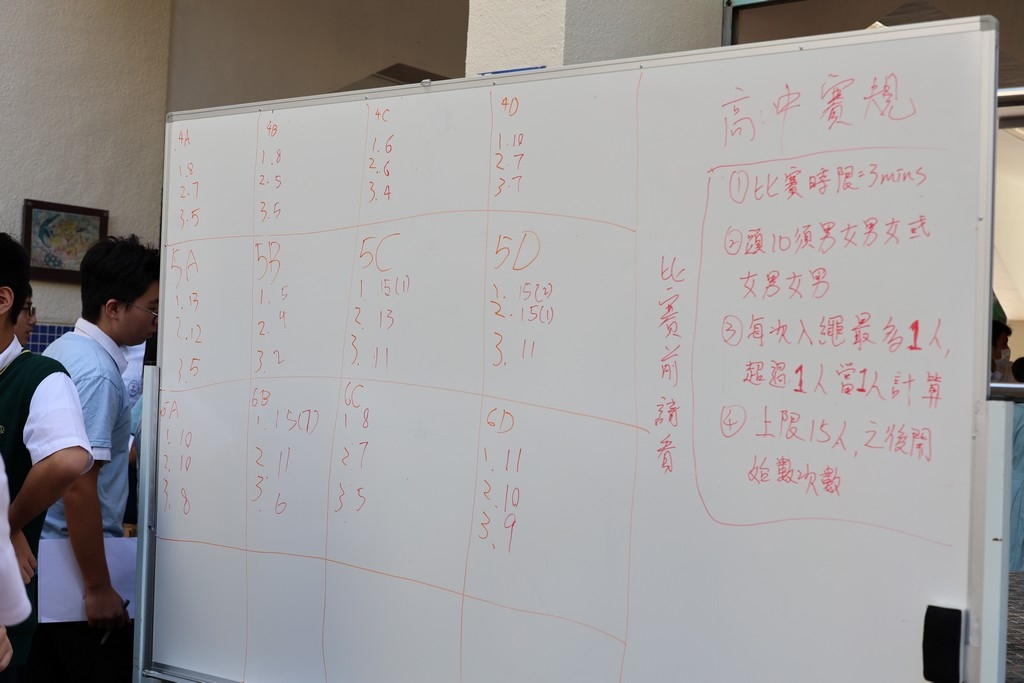 4A
1.8
2.7
3.5
4B
1.8
2.5
3.5
4C
1.6
2.6
3.4
4D
1.10
2.7
3.7
5A
1.13
2.12
3.5
5B
1. 5
2. 9
3. 2
5C
1. 15(1)
2. 13
3. 11
5D
1. 15(2)
2. 15(1)
3. 11
6A
1.10
2.10
3. 8
6B
1. 15(7)
2. 11
3. 6
6C
1. 8
2. 7
3. 5
6D
1. 11
2. 10
3. 9
比賽前請看
高中賽規
① 比賽時間=3mins
② 頭10須男女男女或
女男女男
③ 每次入繩最多1人,
超過1人當1人計算
④ 上限15人,之後開
始數次數